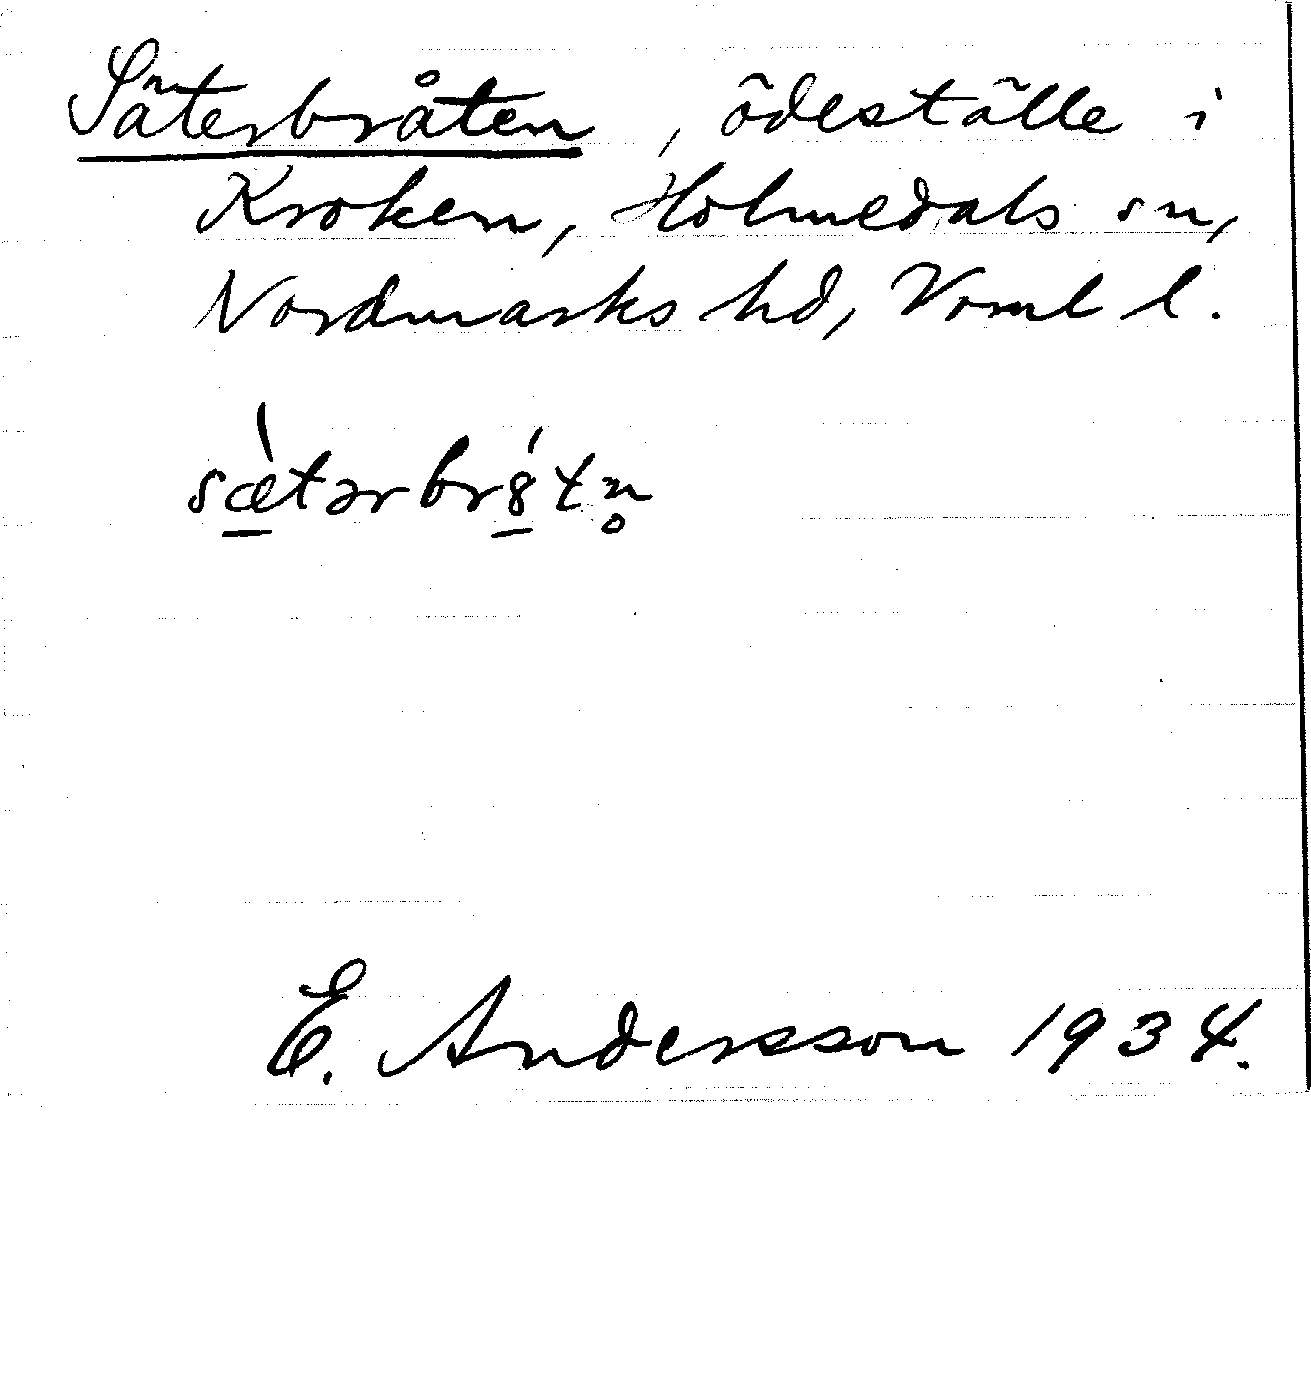 Säterbråten, ödeställe i
Kroken, Holmedals sn,
Nordmarks hd, Vrml l.
sæ̠̀tərbr8̠́tn̥
E. Andersson 1934.